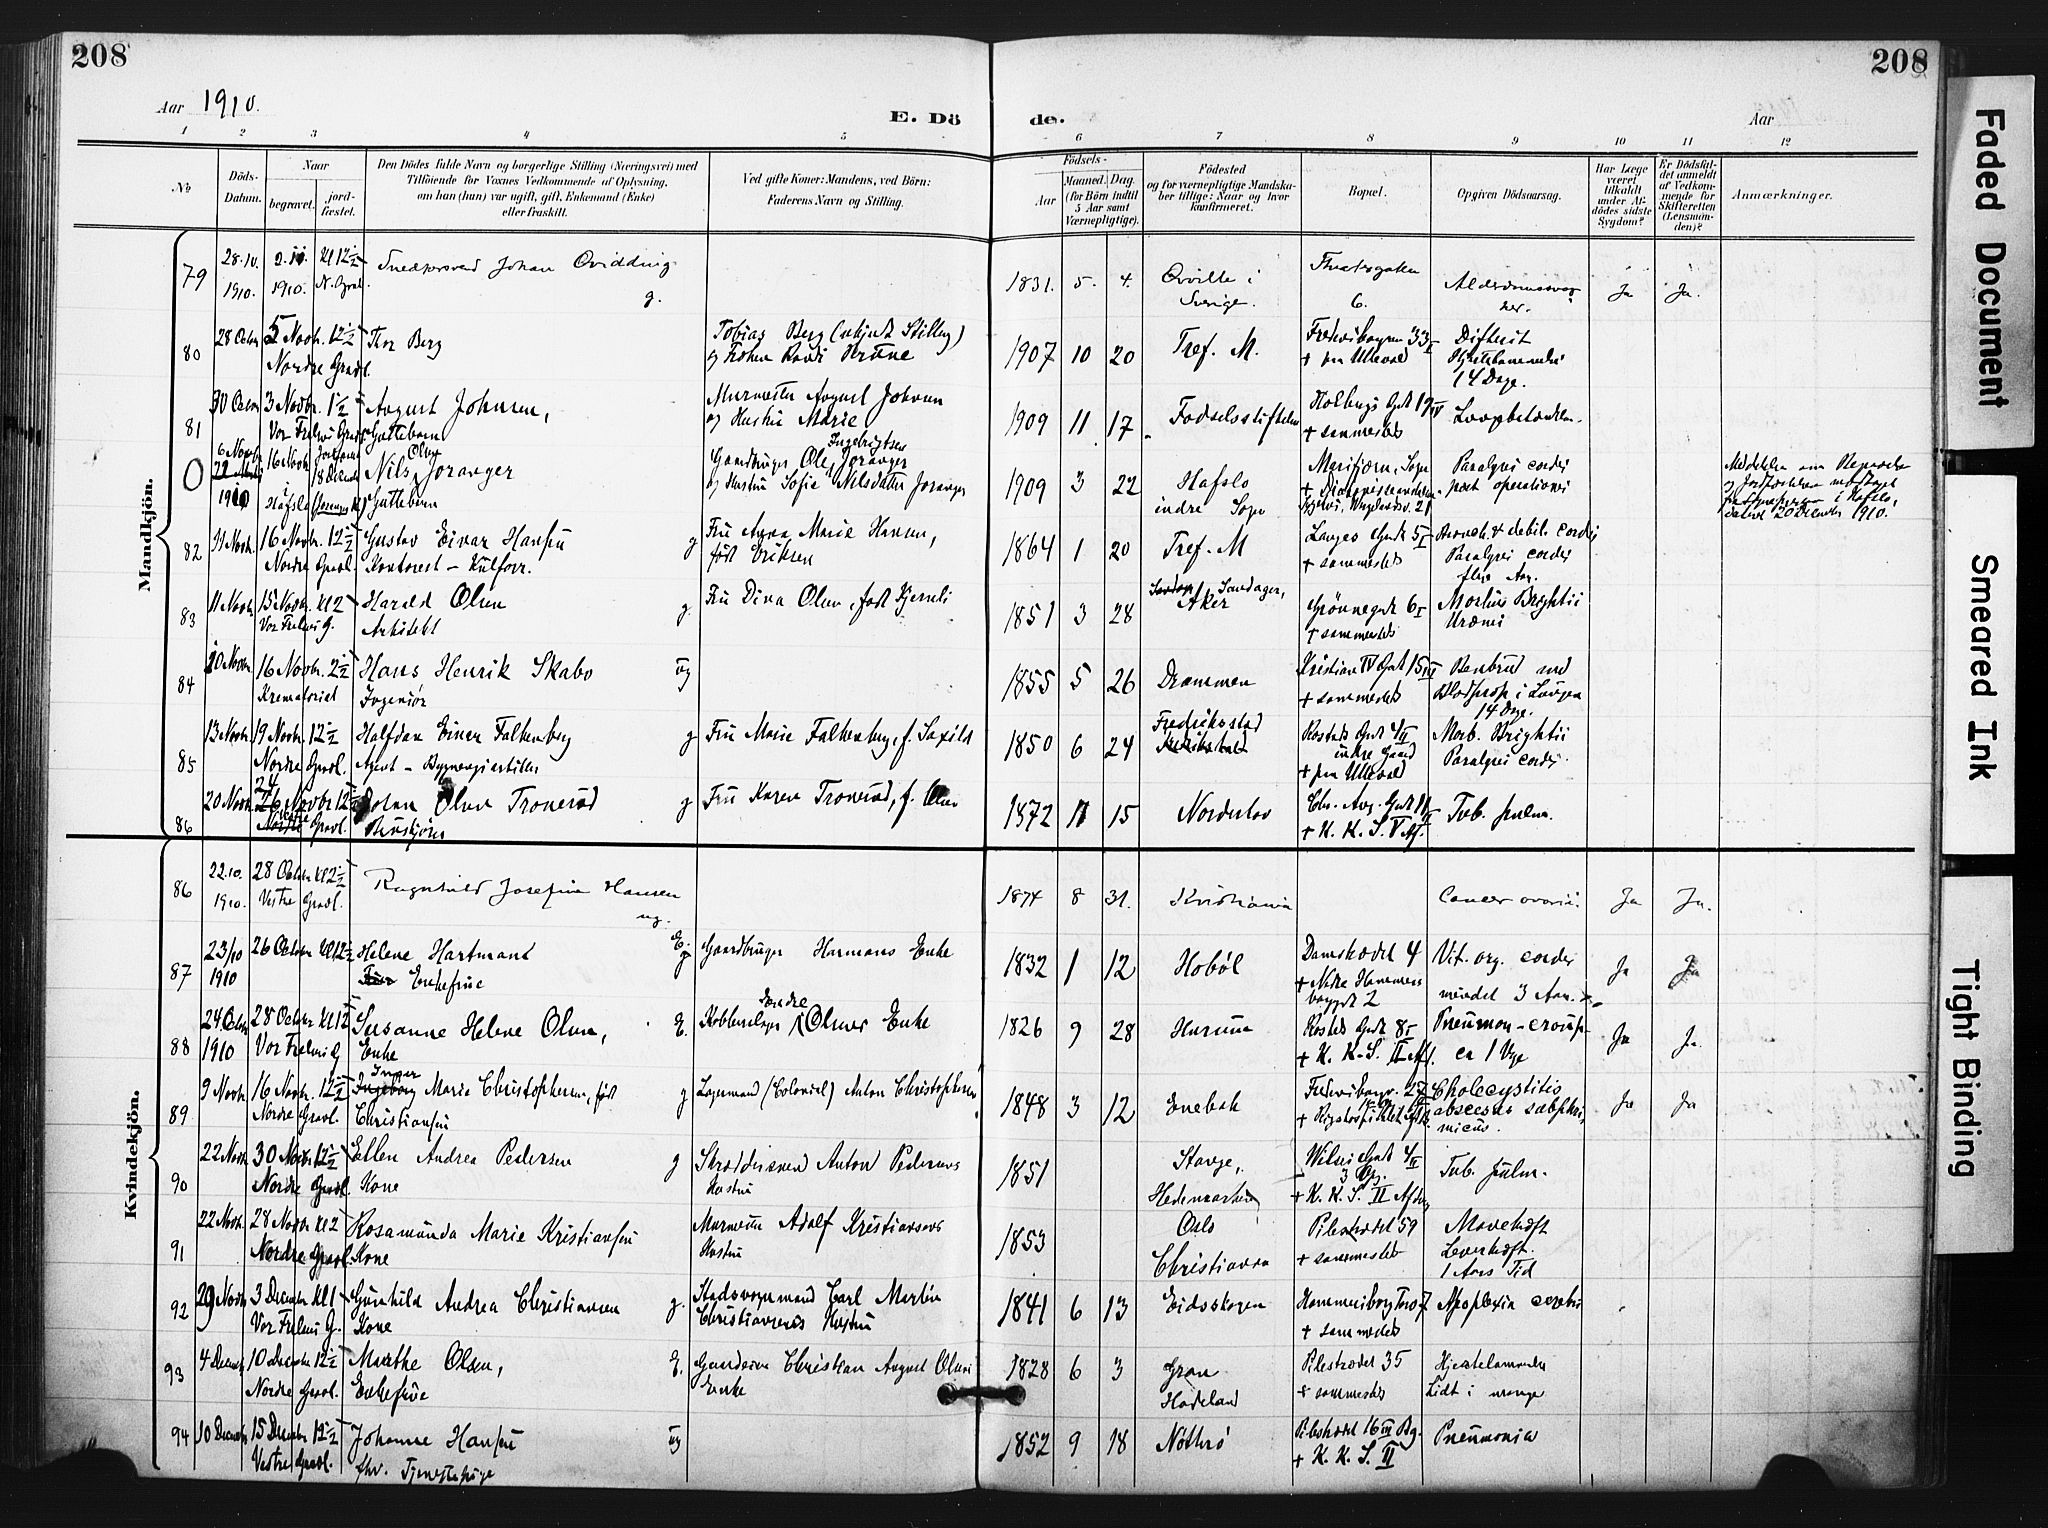 208
208
Aar 1910.
E. Dö
de.
Aar
1 2 3 4 5 6 7 8 9 10 11 12
No
Döds-
Datum.
Naar
begravet.
jord-
fæstet.
Den Dödes fulde Navn og borgerlige Stilling (Næringsvei) med
Tilföiende for Voxnes Vedkommende af Oplysning,
om han (hun) var ugift, gift, Enkemand (Enke)
eller fraskilt.
Ved gifte Koner: Mandens, ved Börn:
Faderens Navn og Stilling.
Födsels-
Aar
Maaned. Dag
(for Börn indtil
5 Aar samt
Værnepligtige).
Födested
og for værnepligtige Mandska-
ber tillige: Naar og hvor
konfirmeret.
Bopæl.
Opgiven Dödsaarsag.
Har Læge
været
tilkaldt
under Af-
dödes sidste
Sygdom?
Er Dödsfal-
det anmeldt
af Vedkom-
mende for
Skifteretten
(Lensman-
den)?
Anmærkninger.
Mandkjön.
79 28.10. 1910. 2.11. 1910. Kl 12½ N. Gravl. Johan Qvidding g. 1831. 5. 4. Qville i Sverige. Theatergaten 6. Ja Ja.
80 28 Octbr 5 Novbr. 12½ Nordre Gravl. Thor Berg Tobias Berg (ukjendt Stilling) 1907 10 20 Tref. M. + paa Ullevaal Difterit 14 Dage.
81 30 Octbr 3 Novbr. 1½ Vor Frelsers Grav. August Johnsen, Guttebarn Murmester August Johnsen og Hustru Marie 1909 11 17 Födselsstiftelsen Holbergs Gade 19 IV + sammesteds
0 6 Novbr 1910 16 Novbr i Hafslo 18 Decembr Nils Olsen Joranger Guttebarn Gaardbruger Ole Ingebrigtsen Joranger og Hustru Sofie Nilsdatter Joranger 1909 3 22 Hafslo indre Sogn Marifjæren, Sogn Paralysis cordis post operationes
i Hafslo, dateret 20 Decembr 1910.
82 11 Novbr. 16 Novbr. 12½ Nordre Gravl. Gustav Einar Hansen g Fru Anna Marie Hansen, född Eriksen 1864 1 20 Tref. M Langes Gade 5 I + sammesteds Paralysis cordis flere Aar.
83 11 Novbr. 15 Novbr. Kl 2 Vor Frelsers G. Harald Olsen Arkitekt g. Fru Dina Olsen, födt 1851 3 28 Aker Grönnegade 6 I + sammesteds Morbus Brightii Uræmi
84 10 Novbr. 16 Novbr. 2½ Krematoriet Hans Henrik Skabo Ingeniör ug 1855 5 26 Drammen Kristian IV Gade 15 III + sammesteds Benbrud med Blodprop i Lungen 14 Dage.
85 13 Novbr. 19 Novbr. 12½ Nordre Gravl. Halfdan Einer Falkenberg Agent g Fru Marie Falkenberg, f. Saxild 1850 6 24 Fredrikstad Rosteds Gade 4 II indre Gaard + paa Ullevaal Morb. Brightii Paralysis cordis
86 20 Novbr. 24 Novbr 12½ Vestre Gravl. Johan Olsen Tronerud g Fru Karen Tronerud, f. Olsen 1872 11 15 Nordenhov Chr. Aug. Gade 11 II + K. K. S. V Afd. Tub. pulm.
Kvindekjön.
86 22.10. 1910. 28 Octobr Kl 2½ Vestre Gravl. Ragnhild Josefine Hansen ug. 1874 8 31. Kristiania Cancer ovarii. Ja Ja.
87 23/10 1910 26 October Kl 12½ Helene Hartmann Enkefrue E. Gaardbruger Enke 1832 1 12 Hobøl Damstrædet 4 Vit. org. cordis mindst 3 Aar. Ja Ja
88 24 Octbr 1910 28 October Kl 12 Vor Frelsers G Susanne Helene Olsen, Enke E. Endre Olsens Enke 1826 9 28 Hurum Rosteds Gade 8 + K. K. S. II Afd. Pneumon. croup. ca 1 Uge Ja Ja.
89 9 Novbr. 16 Novbr. 12½ Nordre Gravl. Inger Marie Christophersen, födt Christiansen g Lagermand (Colonial) Anton Christophersen 1848 3 12 Enebak Cholecystitis abscessus subphrenicus. Ja Ja
90 22 Novbr. 30 Novbr. 12½ Nordre Gravl. Ellen Andrea Pedersen Kone g Skræddersvend Anton Pedersens Hustru 1851 Stange, Hedemarken Wilses Gade 4 II + K. K. S. II Afdeling Tub. pulm.
91 22 Novbr. 28 Novbr Kl 2 Nordre Gravl. Rosamunda Marie Kristiansen Kone Murmester Adolf Kristiansens Hustru 1853 Oslo Christiania Pilestrædet 59 + sammesteds Mavekræft Leverkræft. 1 Aars Tid
92 29 Novbr. 3 Decembr Kl 1 Vor Frelsers G. Gunhild Andrea Christiansen Kone g. Stadsvognmand Carl Martin Christiansens Hustru 1841 6 13 Eidsskogen Hammersborg Torv 7 + sammesteds Apoplexia cerebri
93 4 Decembr 10 Decembr 12½ Nordre Gravl. Marthe Olsen, Enkefrue E. Christian August Olsens Enke 1828 6 3 Gran Hadeland Pilestrædet 35 + sammesteds Hjertelammelse Lidt i mange
94 10 Decembr 15 Decembr 12½ Vestre Gravl. Johanne Hansen fhv. Tjenestepige ug 1852 9 18 Nötterö Pilestrædet 16 III Bg. + K. K. S. II Pneumonia
Faded Document
Smeared Ink
Tight Binding